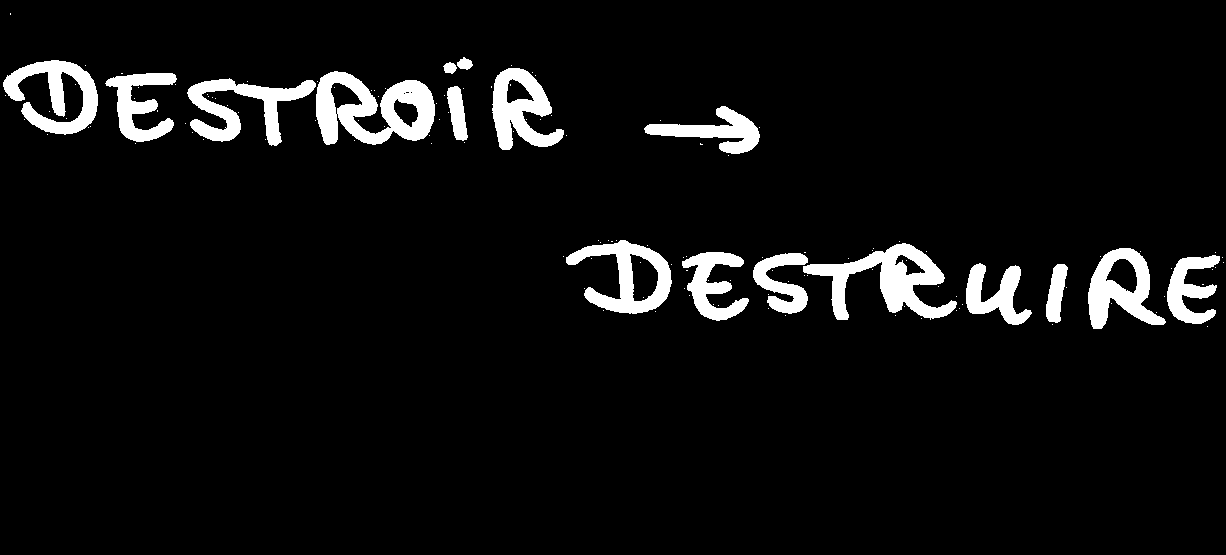 DESTROÏR →
DESTRUIRE